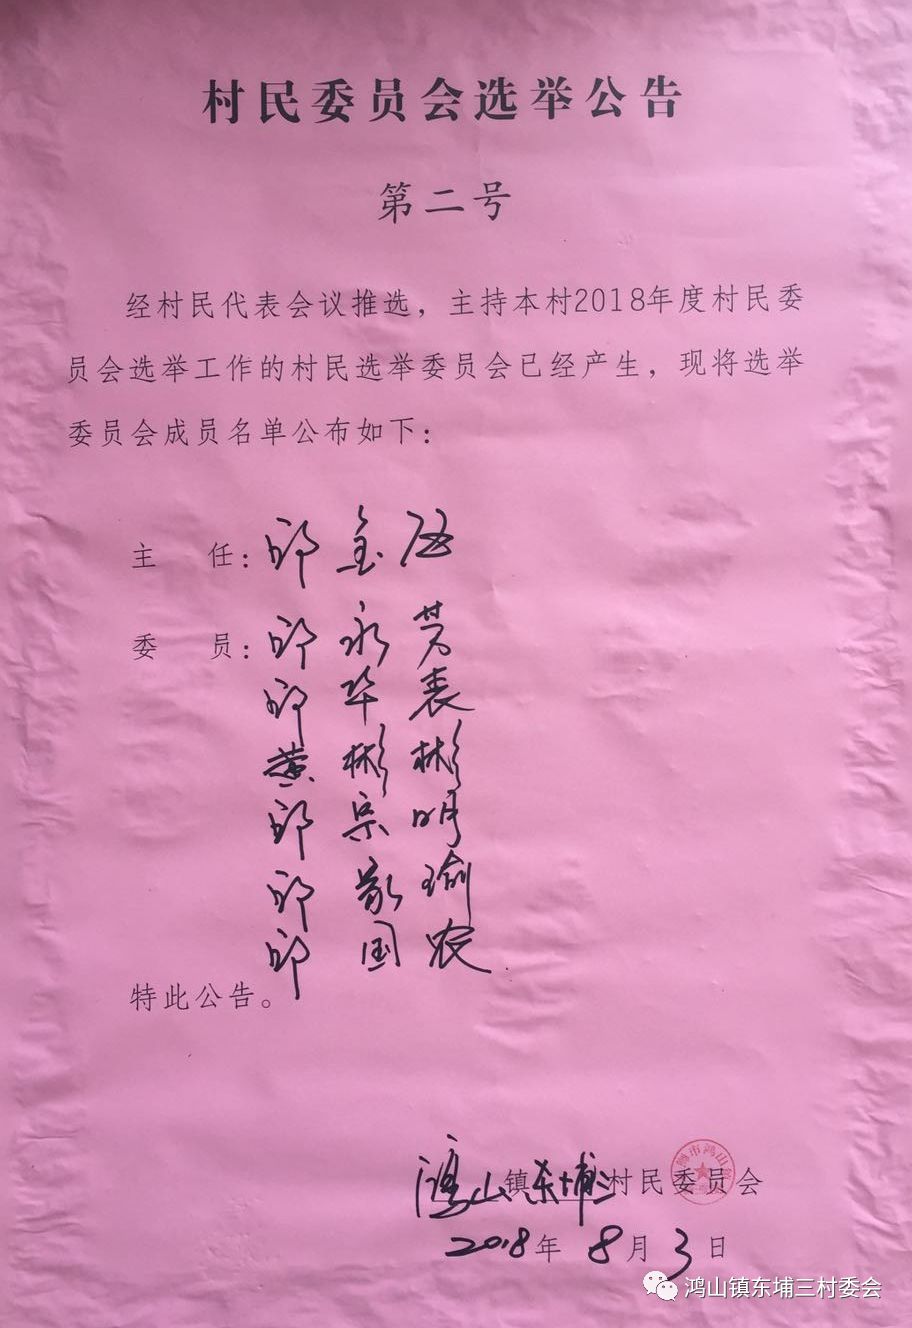 村民委员会选举公告
第二号
经村民代表会议推选，主持本村2018年度村民委
员会选举工作的村民选举委员会已经产生，现将选举
委员会成员名单公布如下：
主 任：邱金
委 员：邱永芳
邱华表
黄彬彬
邱宗明
邱敬瑜
邱国农
特此公告。
鸿山镇东埔三村民委员会
2018年8月3日
鸿山镇东埔三村委会